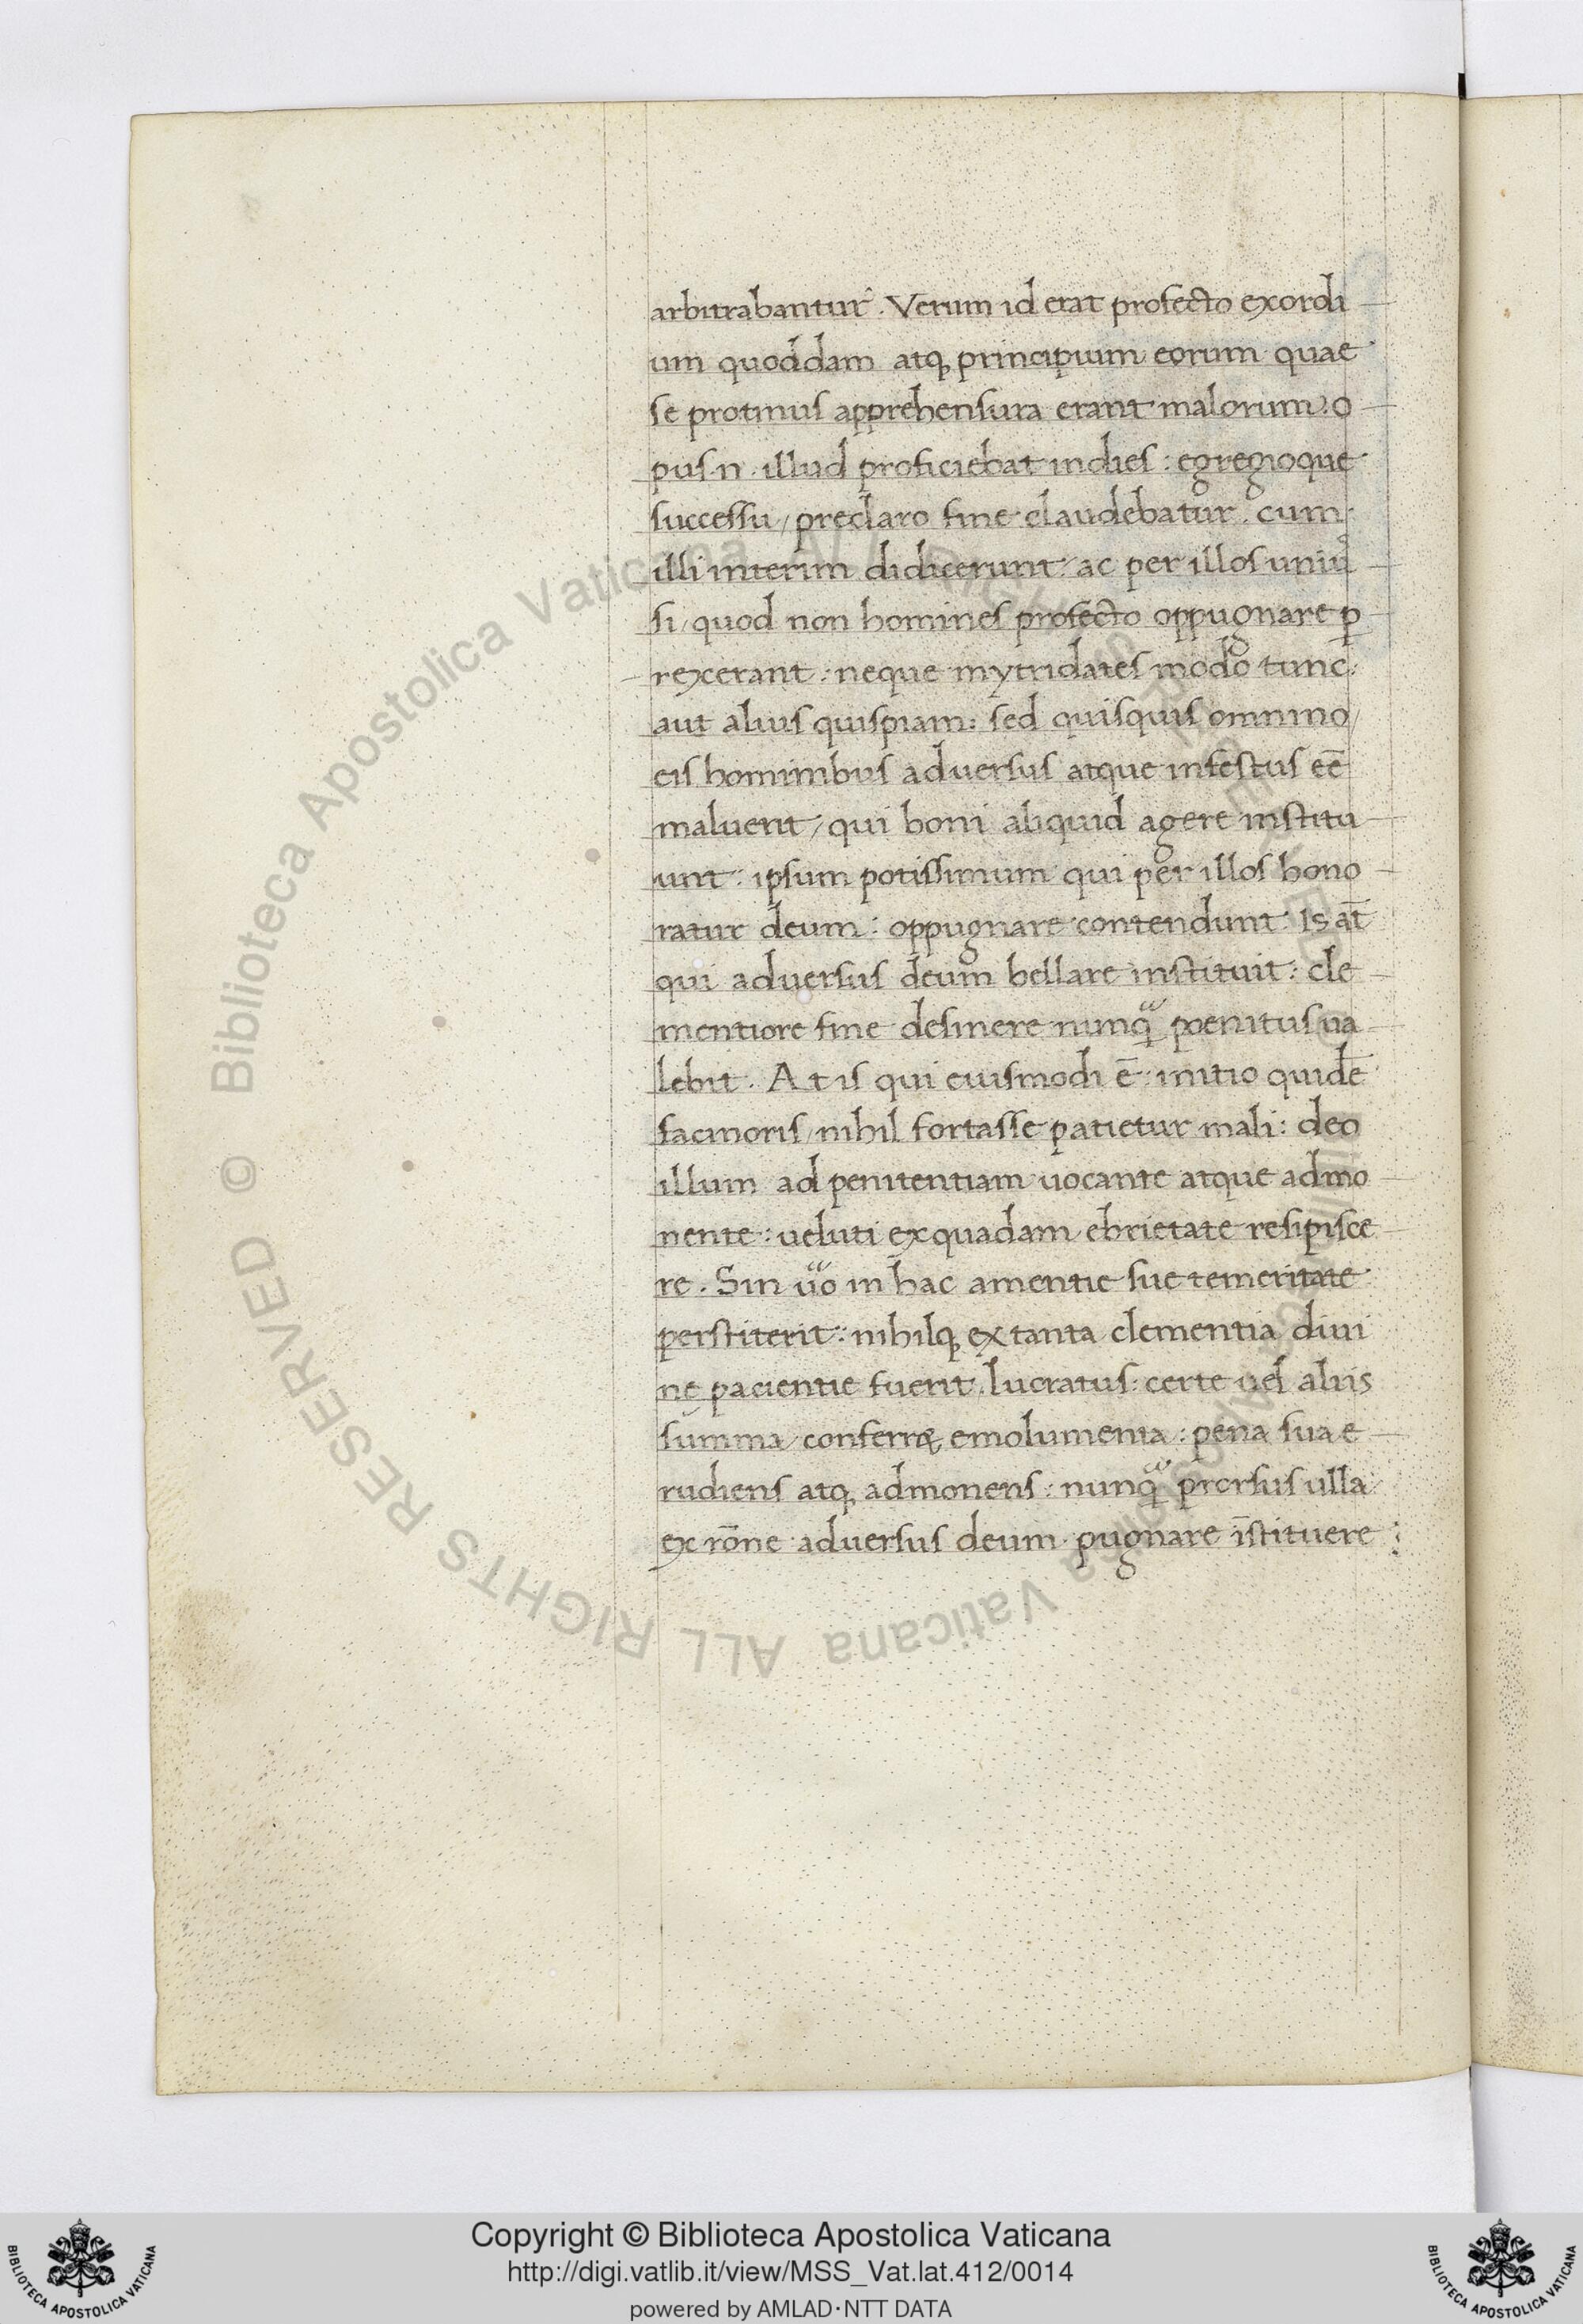 arbitrabantur. Verum id erat profecto exordi
um quoddam atq; principium eorum quae
se protinus apprehensura erant malorum. o
pus .n. illud proficiebat indies: egregioque
successu / preclaro fine claudebatur. cum
illi interim didicerunt: ac per illos uniu
si / quod non homines profecto oppugnare ꝑ
rexerant: neque mytridates modo tunc:
aut alius quispiam: sed quisquis omnino /
eis hominibus adversus atque infestus eē
maluerit / qui boni aliquid agere institu
unt: ipsum potissimum qui per illos hono
ratur deum: oppugnare contendunt. Is at̄
qui adversus deum bellare instituit: cle
mentiore fine desinere nunqᷓ poenitus ua
lebit. At is qui euismodi ē: initio quidē
facinoris / nihil fortasse patietur mali: deo
illum ad penitentiam uocante atque admo
nente: veluti ex quadam ebrietate resipisce
re. Sin uᷓo in hac amentie sue temeritate
perstiterit: nihilq; ex tanta clementia diui
nę pacientie fuerit lucratus: certe uel aliis
summa conferręt emolumenta: pena sua e
rudiens atq; admonens: nunqᷓ prorsus ulla
ex rōne adversus deum pugnare īstituere:
Copyright © Biblioteca Apostolica Vaticana
http://digi.vatlib.it/view/MSS_Vat.lat.412/0014
powered by AMLAD·NTT DATA
BIBLIOTECA APOSTOLICA VATICANA
BIBLIOTECA APOSTOLICA VATICANA
© Biblioteca Apostolica Vaticana ALL RIGHTS RESERVED